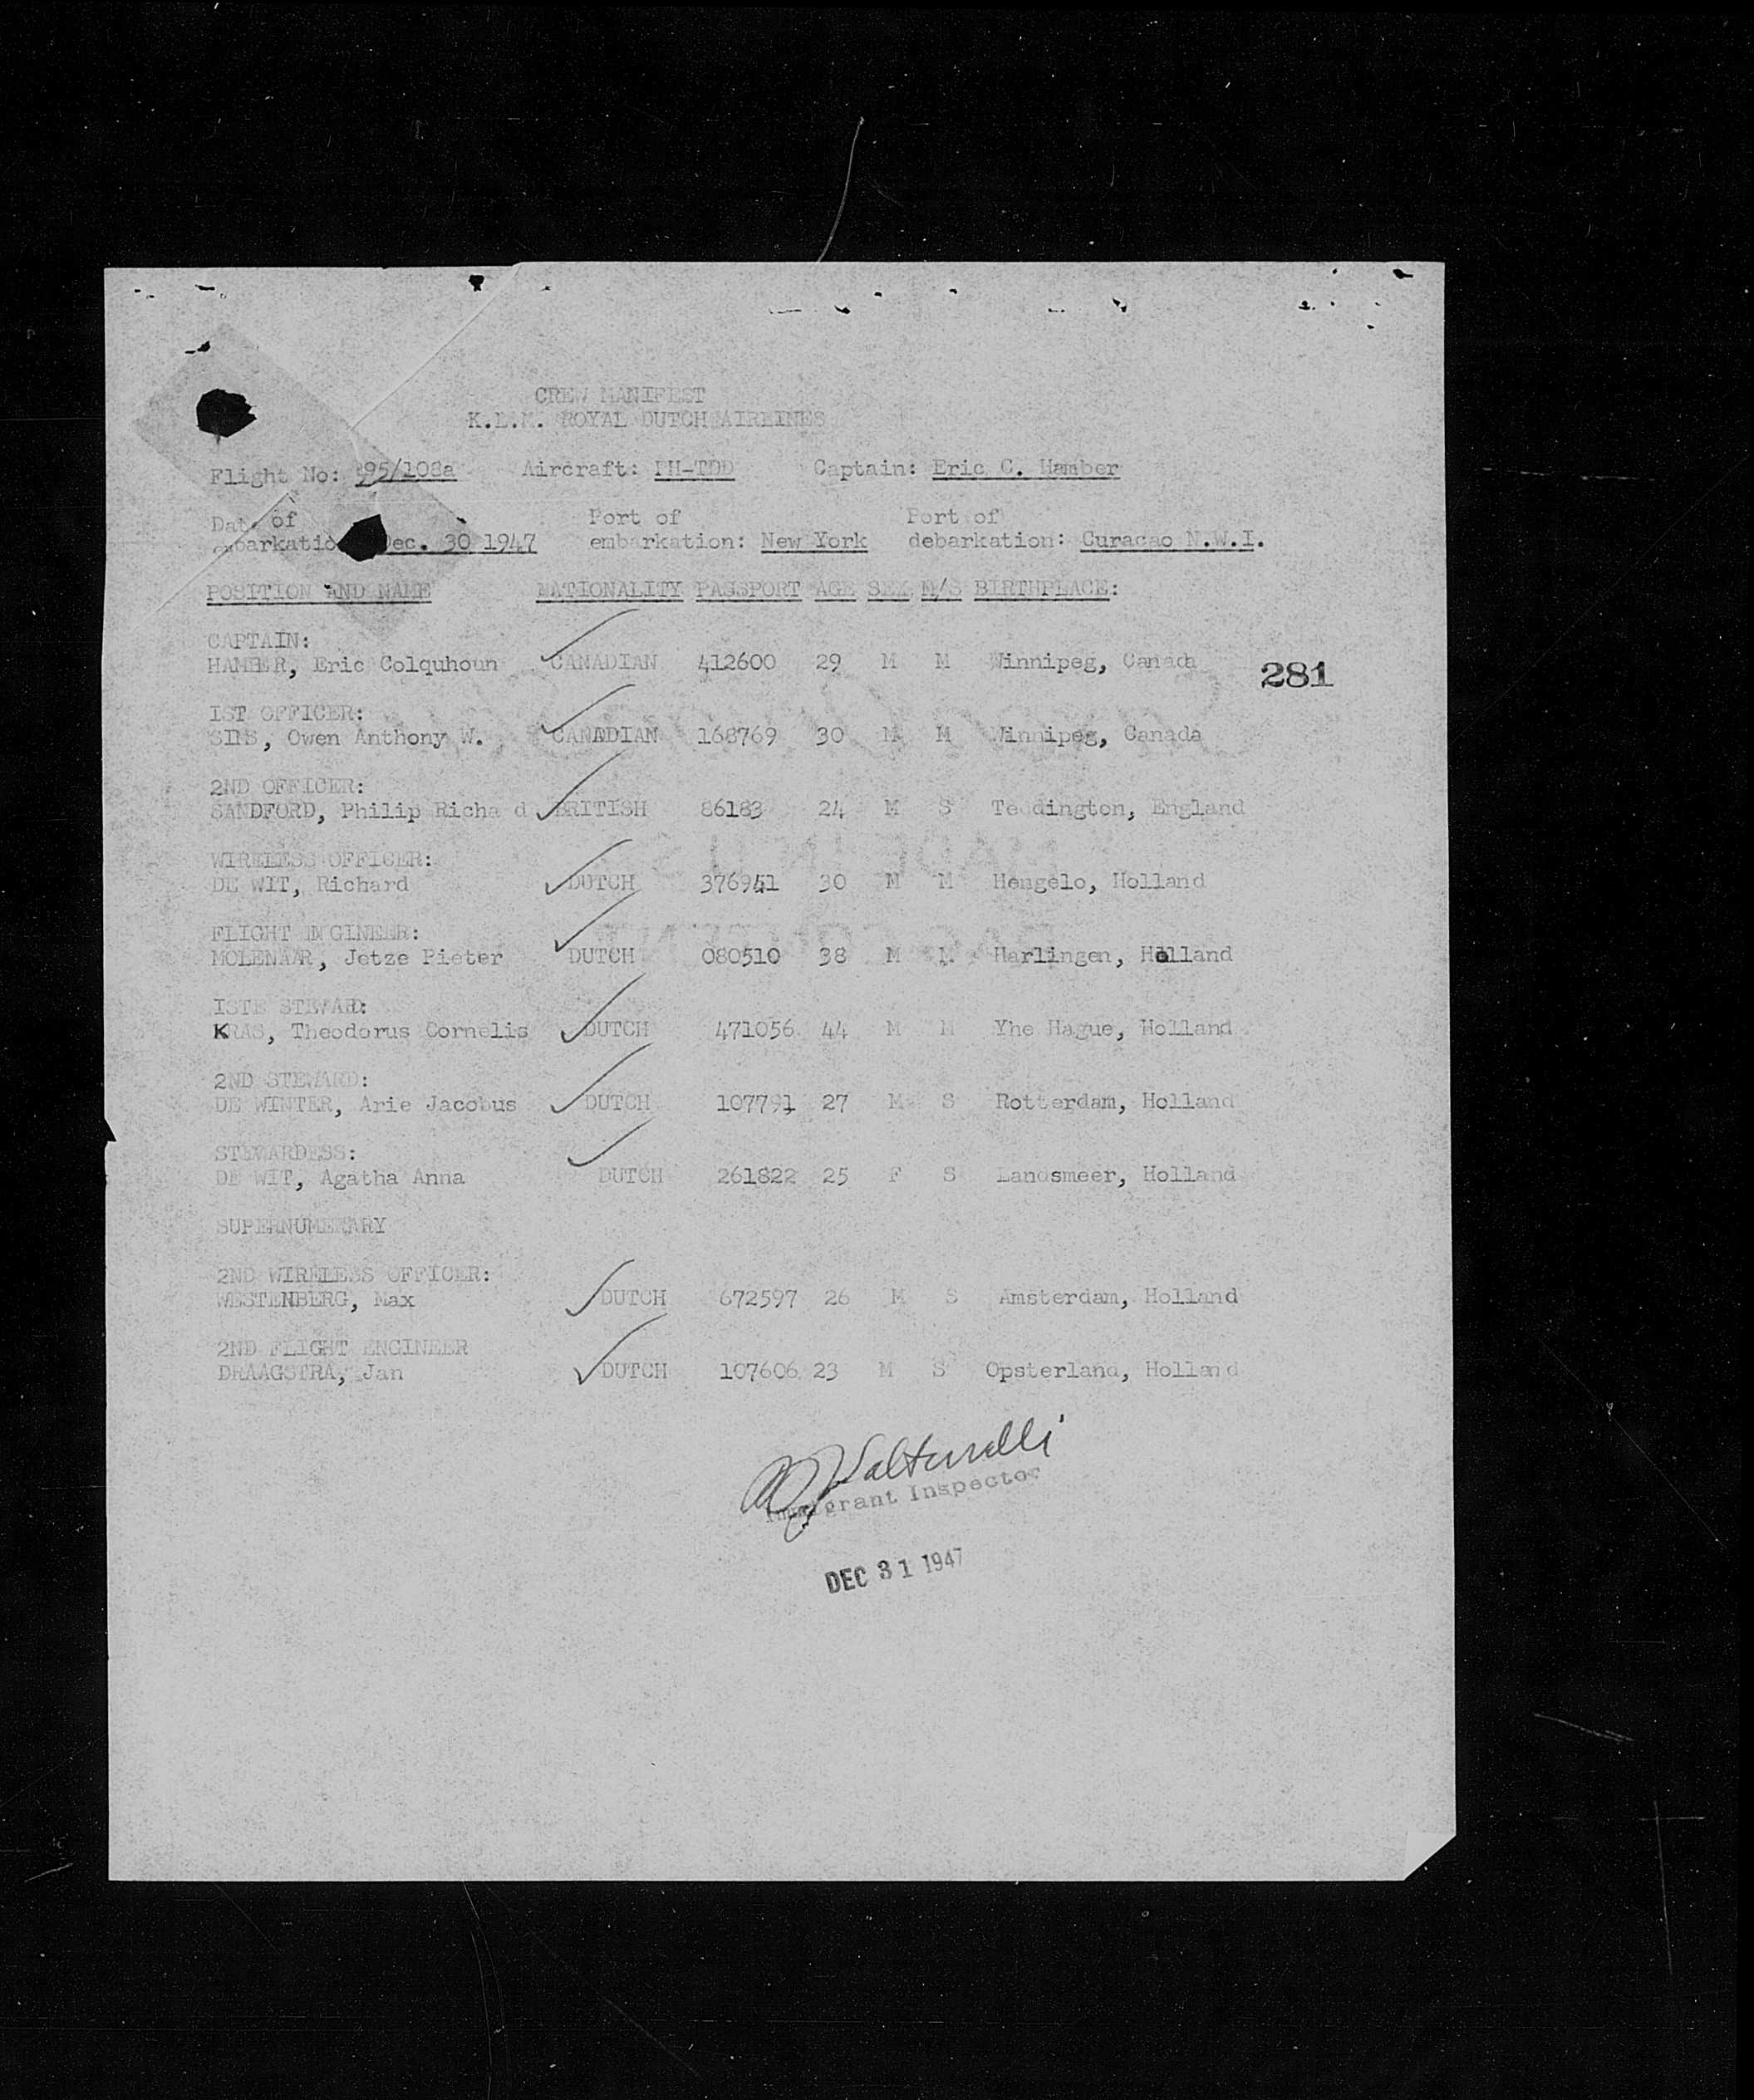 CREW MANIFEST
K.L.M. ROYAL DUTCH AIRLINES
Flight No: 95/108a Aircraft: PH-TDD Captain: Eric C. Hamber
Date of Port of Port of
embarkation Dec. 30 1947 embarkation: New York debarkation: Curacao N.W.I.
POSITION AND NAME NATIONALITY PASSPORT AGE SEX M/S BIRTHPLACE:
CAPTAIN:
HAMBER, Eric Colquhoun CANADIAN 412600 29 M M Winnipeg, Canada
281
IST OFFICER:
SIMS, Owen Anthony W. CANADIAN 168769 30 M M Winnipeg, Canada
2ND OFFICER:
SANDFORD, Philip Richa d BRITISH 86183 24 M S Teddington, England
WIRELESS OFFICER:
DE WIT, Richard DUTCH 376941 30 M M Hengelo, Holland
FLIGHT ENGINEER:
MOLENAAR, Jetze Pieter DUTCH 080510 38 M M Harlingen, Holland
ISTE STEWARD:
KRAS, Theodorus Cornelis DUTCH 471056 44 M M Yhe Hague, Holland
2ND STEWARD:
DE WINTER, Arie Jacobus DUTCH 107791 27 M S Rotterdam, Holland
STEWARDESS:
DE WIT, Agatha Anna DUTCH 261822 25 F S Landsmeer, Holland
SUPERNUMERARY
2ND WIRELESS OFFICER:
WESTENBERG, Max DUTCH 672597 26 M S Amsterdam, Holland
2ND FLIGHT ENGINEER
DRAAGSTRA, Jan DUTCH 107606 23 M S Opsterland, Holland
Immigrant Inspector
DEC 31 1947